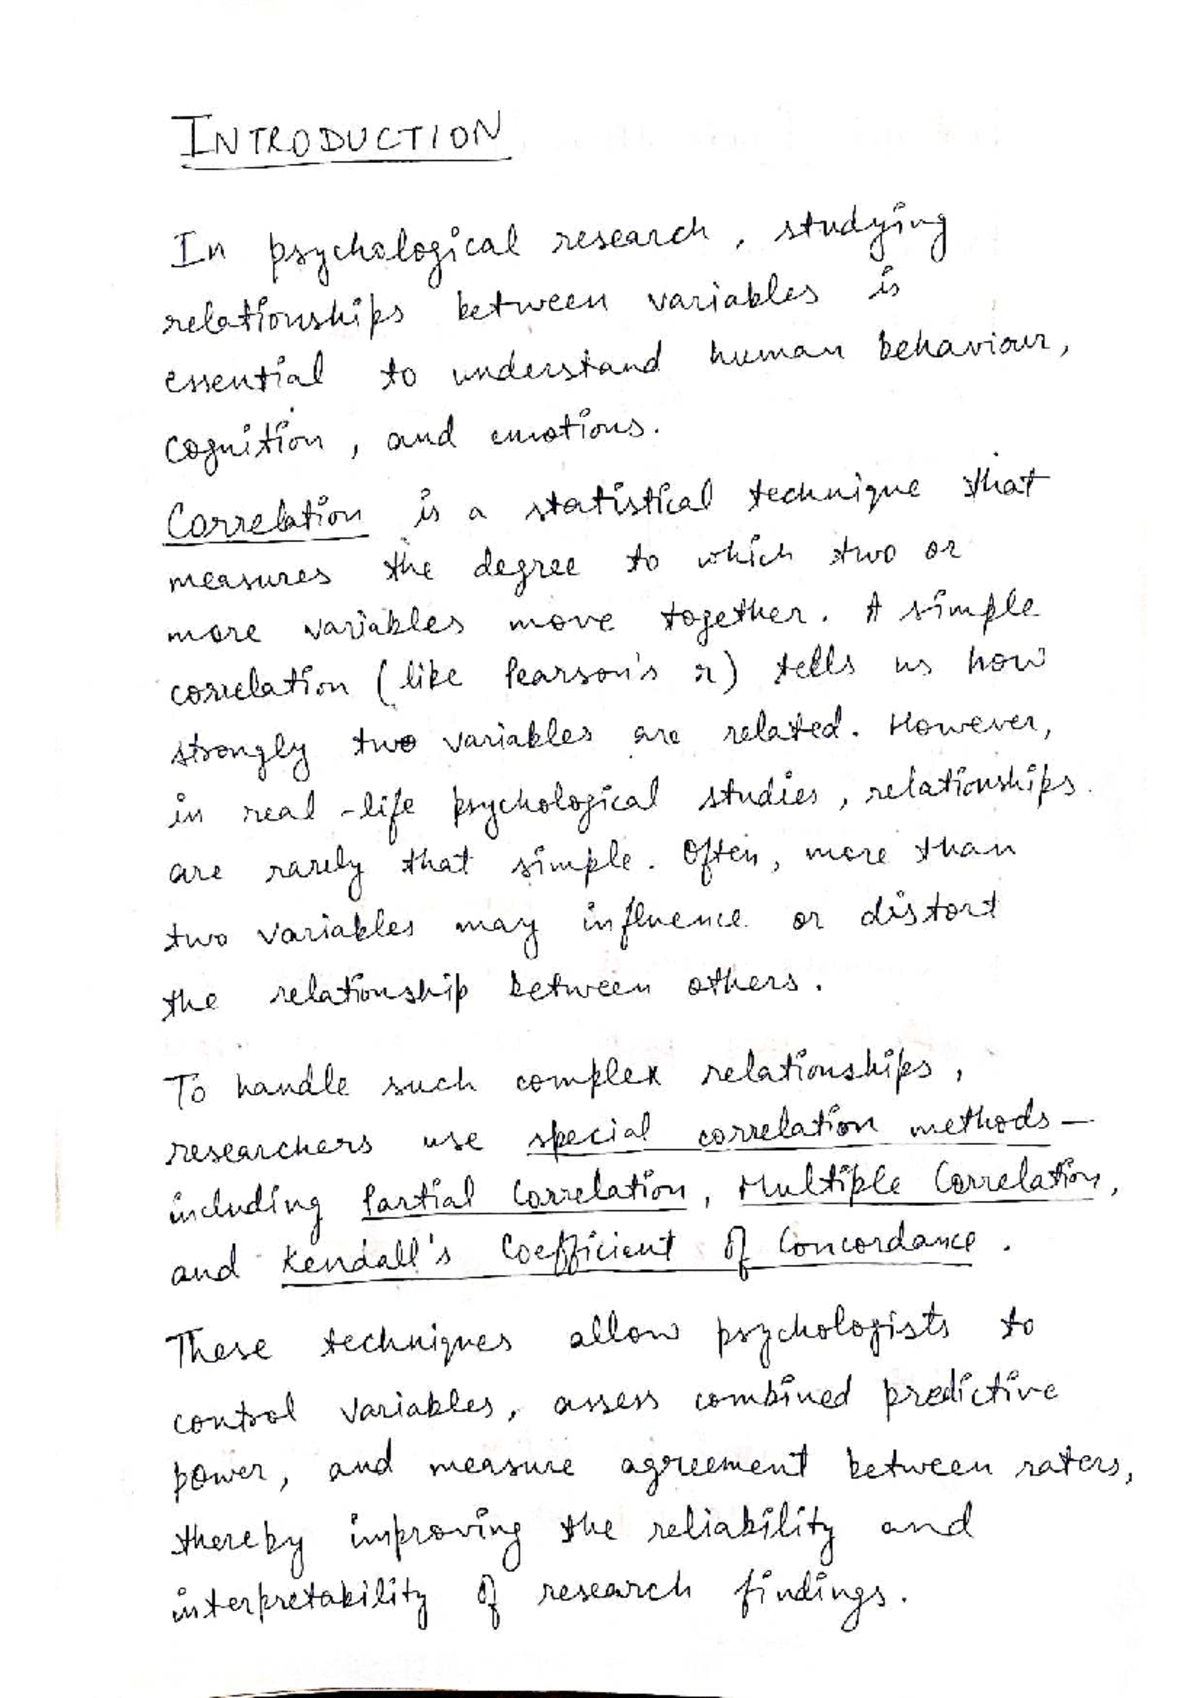 INTRODUCTION
In psychological research, studying
relationships between variables is
essential to understand human behaviour,
cognition, and emotions.
Correlation is a statistical technique that
measures the degree to which two or
more variables move together. A simple
correlation (like Pearson's r) tells us how
strongly two variables are related. However,
in real-life psychological studies, relationships
are rarely that simple. Often, more than
two variables may influence or distort
the relationship between others.
To handle such complex relationships,
researchers use special correlation methods—
including Partial Correlation, Multiple Correlation,
and Kendall's Coefficient of Concordance.
These techniques allow psychologists to
control variables, assess combined predictive
power, and measure agreement between raters,
thereby improving the reliability and
interpretability of research findings.